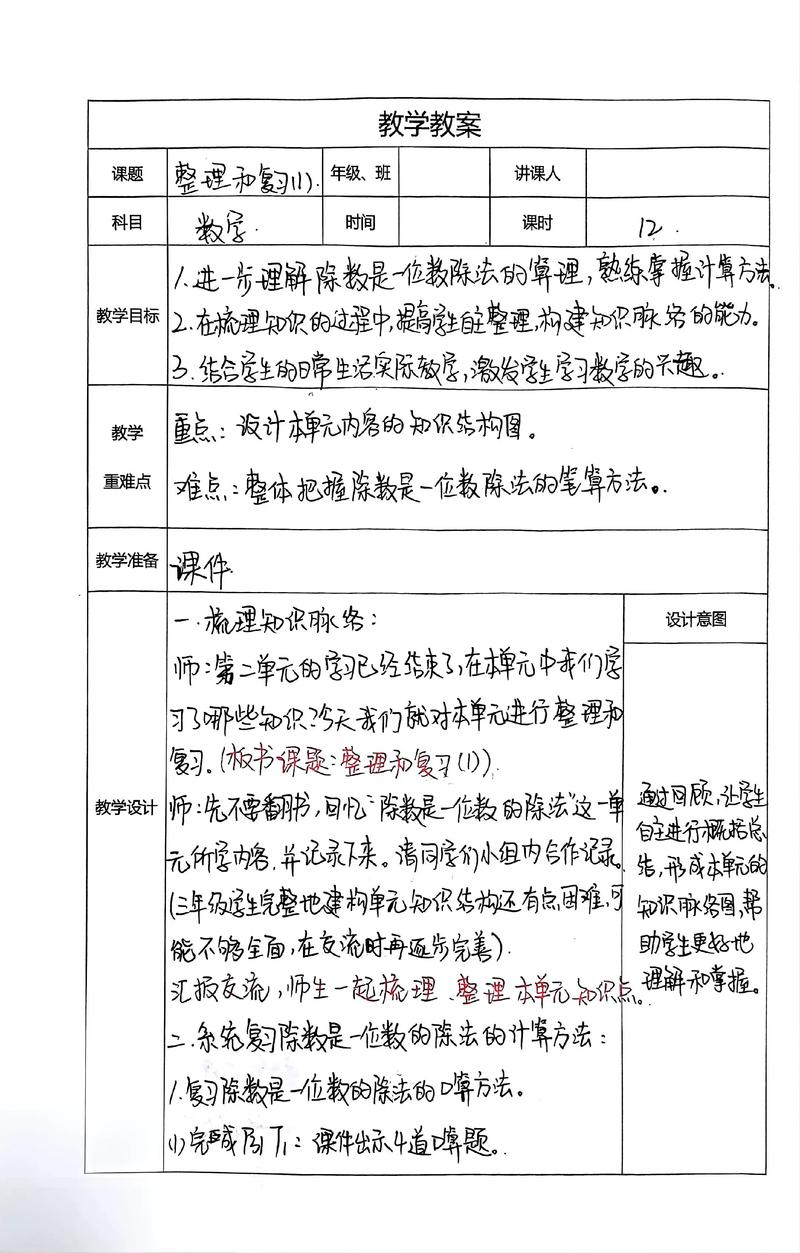 教学教案
课题 整理和复习(1). 年级、班 讲课人
科目 数学. 时间 课时 12.
教学目标
1.进一步理解除数是一位数除法的算理,熟练掌握计算方法。
2.在梳理知识的过程中,提高学生自主整理,构建知识脉络的能力。
3.结合学生的日常生活实际教学,激发学生学习数学的兴趣。
教学
重难点
重点:设计本单元内容的知识结构图。
难点:整体把握除数是一位数除法的笔算方法。
教学准备 课件
教学设计
一.梳理知识脉络:
师:第二单元的学习已经结束了,在本单元中我们学
习了哪些知识?今天我们就对本单元进行整理和
复习。(板书课题:整理和复习(1)).
师:先不要翻书,回忆“除数是一位数的除法”这一单
元所学内容,并记录下来。请同学们小组内合作记录。
(三年级学生完整地建构单元知识结构还有点困难,可
能不够全面,在交流时再逐步完善).
汇报交流,师生一起梳理、整理本单元知识点。
二.系统复习除数是一位数的除法的计算方法:
1.复习除数是一位数的除法的口算方法。
(1)完成T1:课件出示4道口算题。
设计意图
通过回顾,让学生
自主进行概括总
结,形成本单元的
知识脉络图,帮
助学生更好地
理解和掌握。